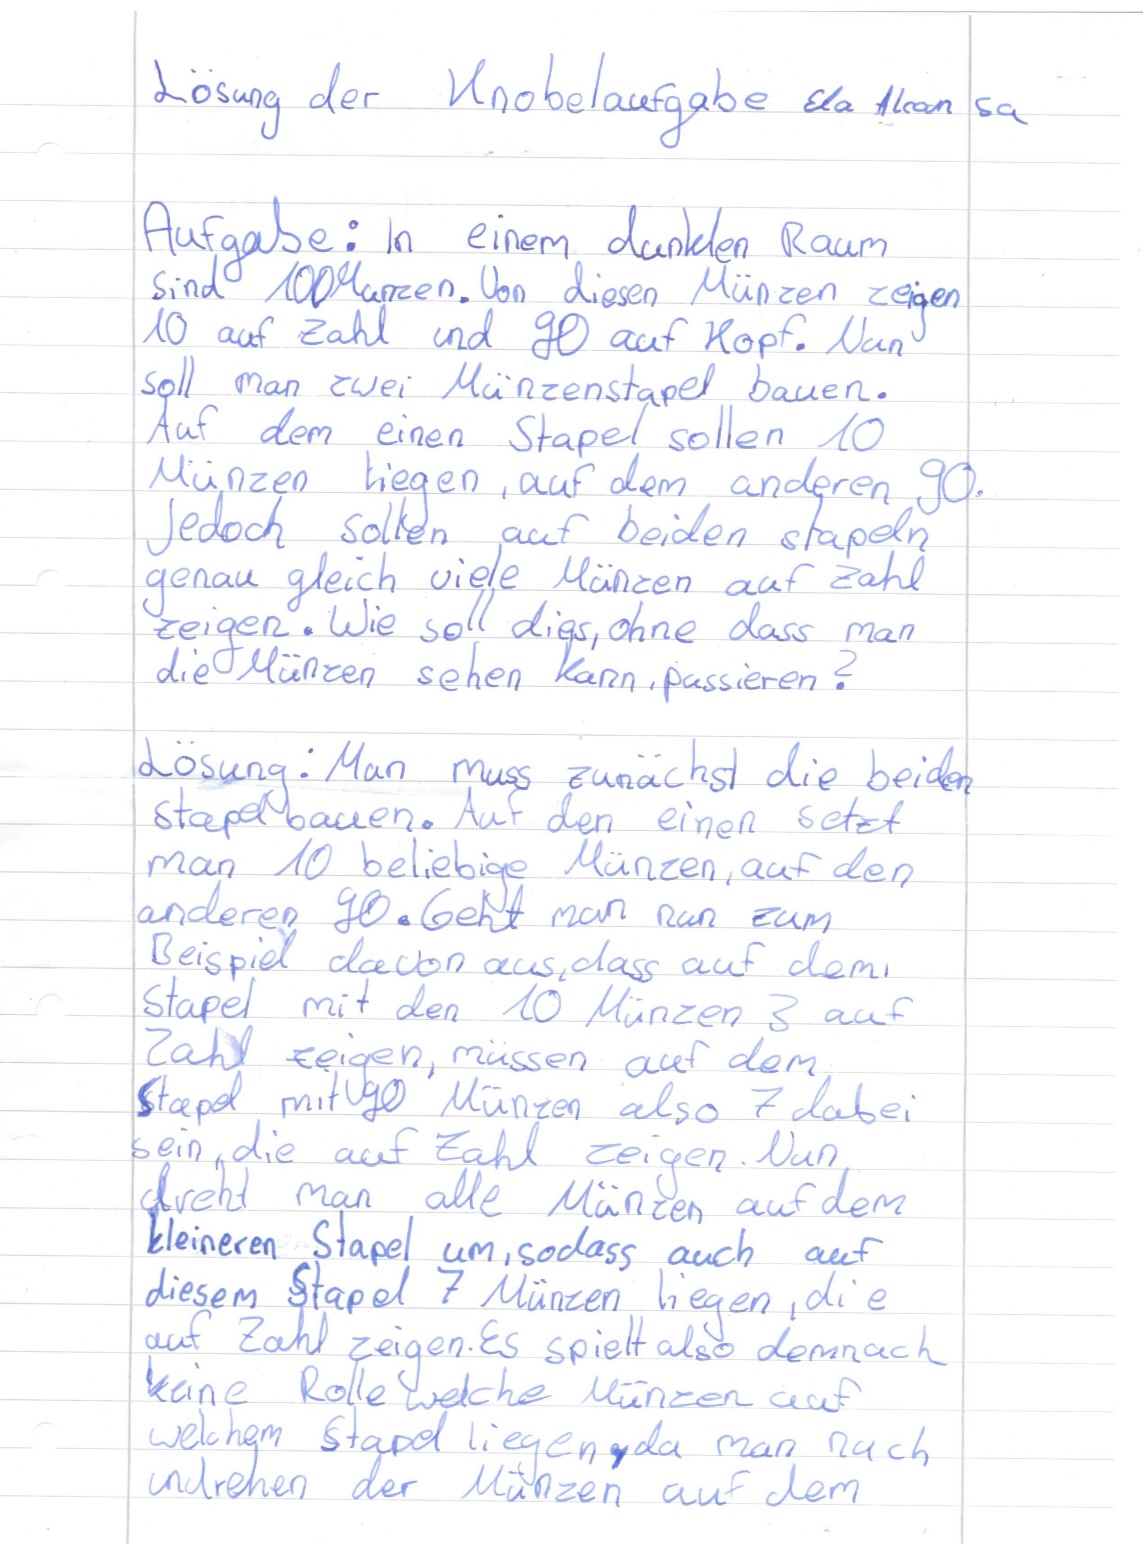 Lösung der Knobelaufgabe Ela Alcan 5a
Aufgabe: In einem dunklen Raum
sind 100 Münzen. Von diesen Münzen zeigen
10 auf Zahl und 90 auf Kopf. Nun
soll man zwei Münzenstapel bauen.
Auf dem einen Stapel sollen 10
Münzen liegen, auf dem anderen 90.
Jedoch sollen auf beiden stapeln
genau gleich viele Münzen auf Zahl
zeigen. Wie soll dies, ohne dass man
die Münzen sehen kann, passieren?
Lösung: Man muss zunächst die beiden
Stapel bauen. Auf den einen setzt
man 10 beliebige Münzen, auf den
anderen 90. Geht man nun zum
Beispiel davon aus, dass auf dem
Stapel mit den 10 Münzen 3 auf
Zahl zeigen, müssen auf dem
Stapel mit 90 Münzen also 7 dabei
sein, die auf Zahl zeigen. Nun
dreht man alle Münzen auf dem
kleineren Stapel um, sodass auch auf
diesem Stapel 7 Münzen liegen, die
auf Zahl zeigen. Es spielt also demnach
keine Rolle welche Münzen auf
welchem Stapel liegen, da man nach
umdrehen der Münzen auf dem